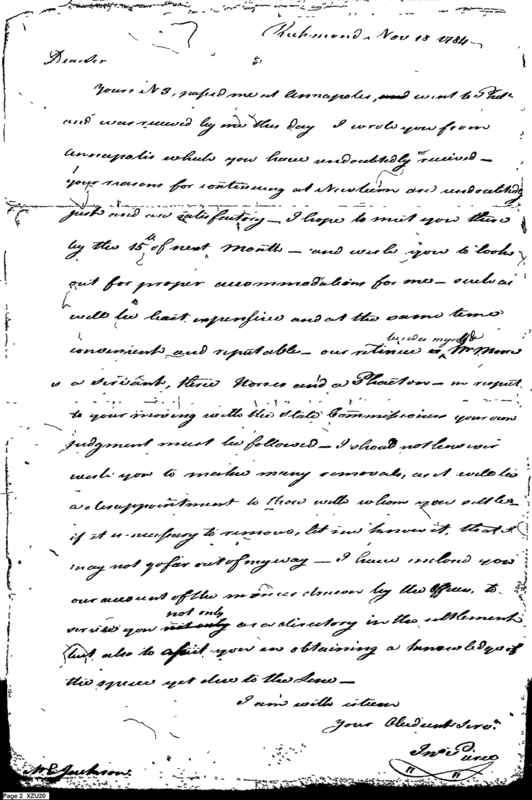 Richmond Nov 18 1784
Dear Sir
Yours No 3, passed me at Annapolis, and went to Phila
and was received by me this day I wrote you from
Annapolis which you have undoubtedly received —
your reasons for continuing at Newbern are undoubtedly
just and are satisfactory — I hope to meet you there
by the 15th of next month — and wish you to look
out for proper accommodations for me — such as
will be least expensive and at the same time
besides myself
convenient and reputable — our retinue is, Mr
a servant, three Horses and a Phaeton — in respect
to your moving with the State Commissioners your own
judgment must be followed — I should not however
wish you to make many removals, as it will be
a disappointment to those with whom you settle
if it is necessary to remove, let me know it, that I
may not go far out of my way — I have inclosed you
our account of the monies drawn by the Officers, to
not only
serve you not only as a directory in the settlement
but also to assist you in obtaining a knowledge of
the specie yet due to the Line —
I am with esteem
Your Obedient Servt
Jno Pierce
Mr E Jackson
Page 2 XZU20